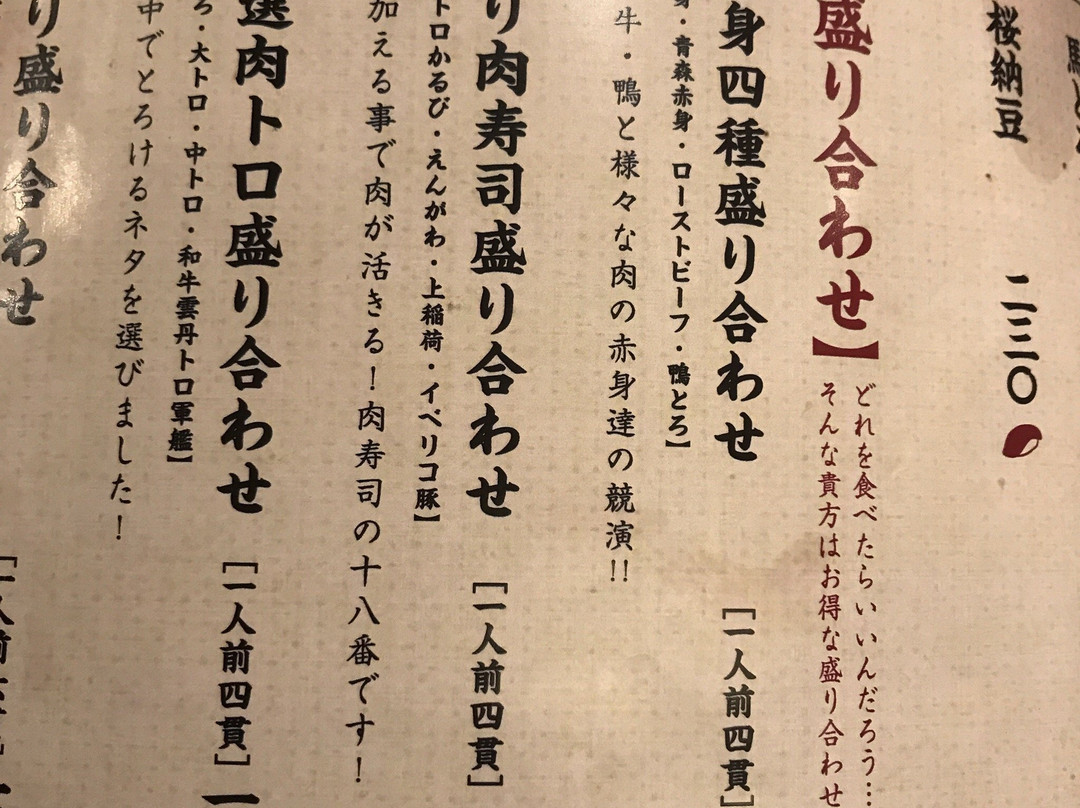 桜納豆
二三〇
盛り合わせ】
どれを食べたらいいんだろう…
そんな貴方はお得な盛り合わせ
身四種盛り合わせ
[一人前四貫]
身・青森赤身・ローストビーフ・鴨とろ】
牛・鴨と様々な肉の赤身達の競演!!
り肉寿司盛り合わせ
[一人前四貫]
トロかるび・えんがわ・上稲荷・イベリコ豚】
加える事で肉が活きる!肉寿司の十八番です!
選肉トロ盛り合わせ
[一人前四貫]
ろ・大トロ・中トロ・和牛雲丹トロ軍艦】
中でとろけるネタを選びました!
り盛り合わせ